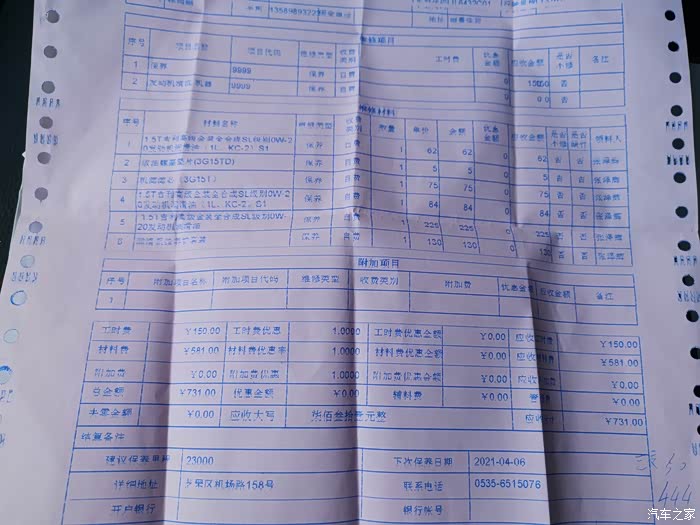 维修项目
序号 项目名称 项目代码 维修类型 收费类别 工时费 优惠金额 应收金额 是否不修 备注
1 保养 9999 保养 自费 0 150.0 否
2 9999 保养 自费 0 0.0 否
维修材料
序号 材料名称 维修类型 收费类别 数量 单价 金额 优惠金额 应收金额 是否不修 是否缺件 领料人
1 1.5T吉利高级金装全合成SL级别0W-20发动机润滑油(1L, KC-2) S1 保养 自费 1 62 62 0 62 否 否 张泽辉
2 放油螺塞垫片(3G15TD) 保养 自费 1 5 5 0 5 否 否 张泽辉
3 机滤滤芯(3G15T) 保养 自费 1 75 75 0 75 否 否 张泽辉
4 1.5T吉利高级金装全合成SL级别0W-20发动机润滑油(1L, KC-2) S1 保养 自费 1 84 84 0 84 否 否 张泽辉
5 1.5T吉利高级金装全合成SL级别0W-20发动机润滑油 保养 自费 1 225 225 0 225 否 否 张泽辉
6 保养 自费 1 130 130 0 130 否 否 张泽辉
附加项目
序号 附加项目名称 附加项目代码 维修类型 收费类别 附加费 优惠金额 应收金额 备注
1
工时费 ¥150.00 工时费优惠 1.0000 工时费优惠金额 ¥0.00 ¥150.00
材料费 ¥581.00 材料费优惠率 1.0000 材料费优惠金额 ¥0.00 ¥581.00
附加费 ¥0.00 附加费优惠 1.0000 附加费优惠金额 ¥0.00 ¥0.00
总金额 ¥731.00 优惠金额 ¥0.00 辅料费 ¥0.00 ¥0.00
去零金额 ¥0.00 应收大写 柒佰叁拾壹元整 ¥731.00
结算条件
建议保养里程 23000 下次保养日期 2021-04-06
详细地址 芝罘区机场路158号 联系电话 0535-6515076
开户银行 银行帐号
444
汽车之家